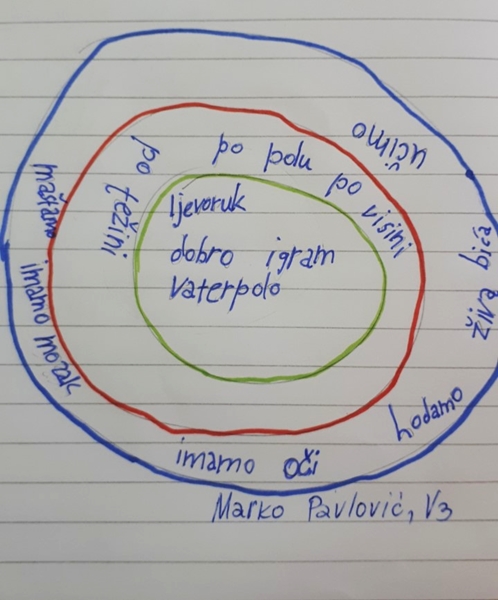 učimo
po polu
po visini
po težini
maštamo
ljevoruk
dobro igram
vaterpolo
živa bića
imamo mozak
hodamo
imamo oči
Marko Pavlović, V3